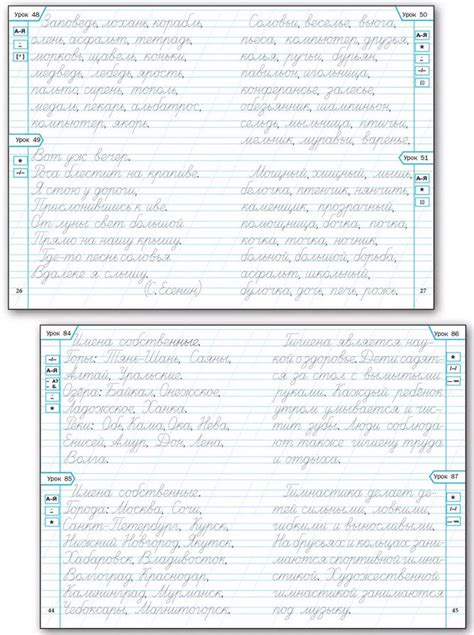 Урок 48
Заповедь, лохань, корабль,
олень, асфальт, тетрадь,
морковь, щавель, коньки,
медведь, лебедь, ярость,
пальто, сирень, тополь,
медаль, пекарь, альбатрос,
компьютер, якорь.
Урок 49
Вот уж вечер.
Роса блестит на крапиве.
Я стою у дороги,
Прислонившись к иве.
От луны свет большой
Прямо на нашу крышу.
Где-то песнь соловья
Вдалеке я слышу.
(С. Есенин)
26
Урок 50
Соловьи, веселье, вьюга,
пьеса, компьютер, друзья,
колья, ручьи, бурьян,
павильон, игольница,
конферансье, залесье,
обезьянник, шампиньон,
сельдь, мыльница, птичьи,
мельник, муравьи, варенье.
Урок 51
Мощный, хищный, мышь,
белочка, птенчик, нянчить,
каменщик, прозрачный,
помощница, бочка, почка,
точка, точка, ночник,
больной, большой, борьба,
асфальт, школьный,
булочка, дочь, печь, рожь.
27
Урок 84
Имена собственные.
Горы: Тянь-Шань, Саяны,
Алтай, Уральские.
Озёра: Байкал, Онежское,
Ладожское, Ханка.
Реки: Обь, Кама, Ока, Нева,
Енисей, Амур, Дон, Лена,
Волга.
Урок 85
Имена собственные.
Города: Москва, Сочи,
Санкт-Петербург, Курск,
Нижний Новгород, Якутск,
Хабаровск, Владивосток,
Волгоград, Краснодар,
Калининград, Мурманск,
Чебоксары, Магнитогорск.
44
Урок 86
Гигиена является нау-
кой о здоровье. Дети садят-
ся за стол с вымытыми
руками. Каждый ребёнок
утром умывается и чис-
тит зубы. Люди соблюда-
ют также гигиену труда
и отдыха.
Урок 87
Гимнастика делает де-
тей сильными, ловкими,
гибкими и выносливыми.
На брусьях и кольцах зани-
маются спортивной гимна-
стикой. Художественной
гимнастикой занимаются
под музыку.
45